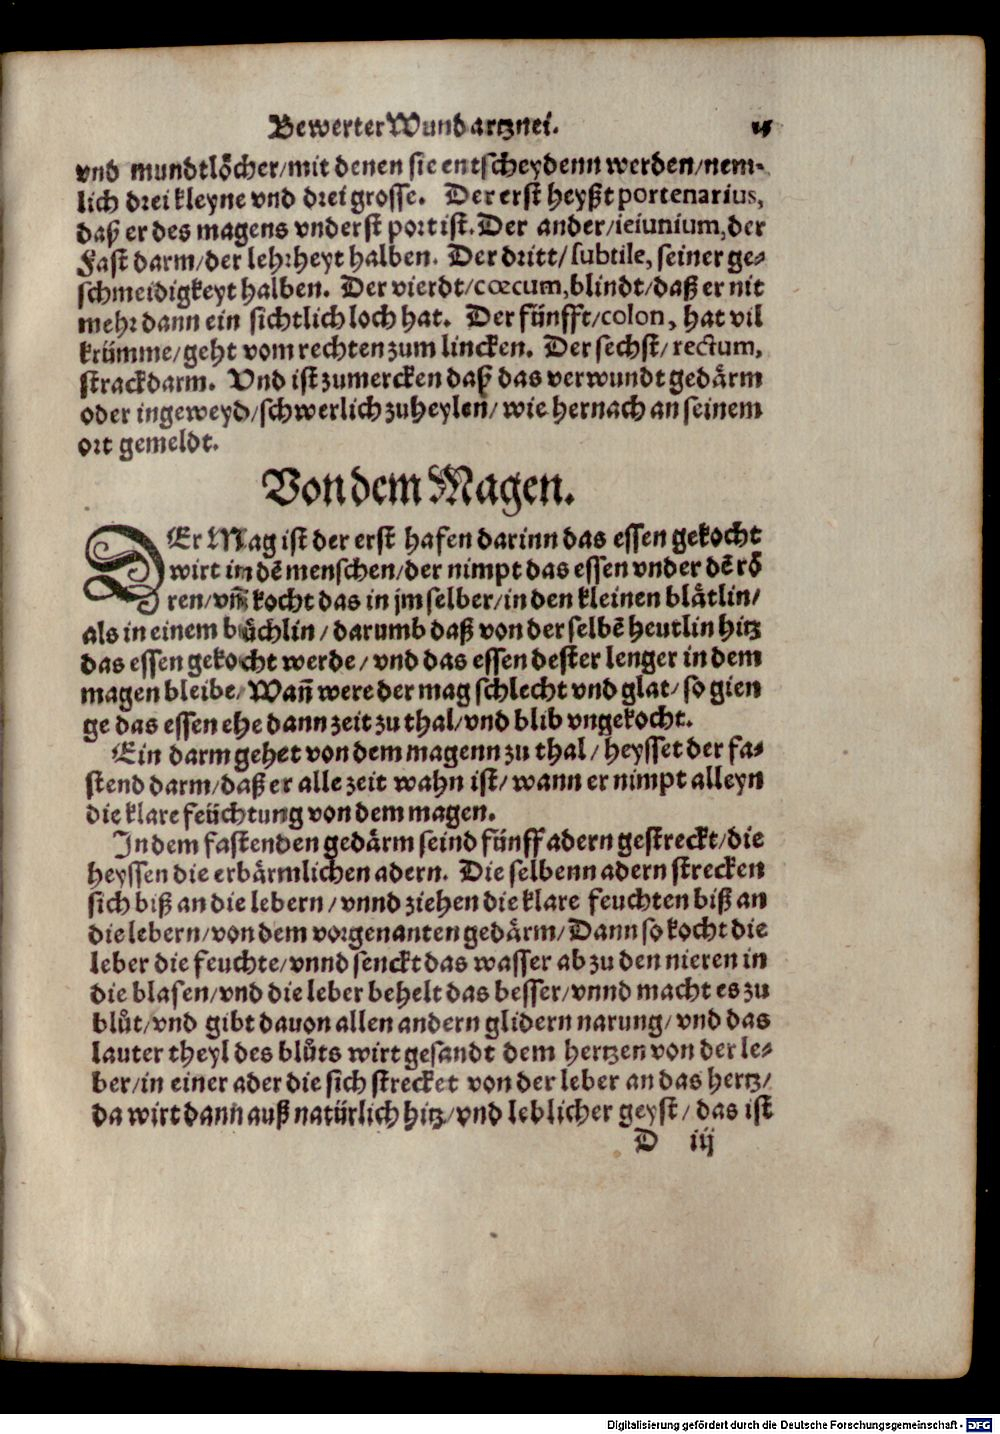 Bewerter Wundartznei. 15
vnd mundtlöcher/mit denen sie entscheydenn werden/nem-
lich drei kleyne vnd drei grosse. Der erst heyßt portenarius,
daß er des magens vnderst port ist. Der ander/ieiunium, der
Fast darm/der lehrheyt halben. Der dritt/subtile, seiner ge-
schmeidigkeyt halben. Der vierdt/cœcum, blindt/daß er nit
mehr dann ein sichtlich loch hat. Der fünfft/colon, hat vil
krümme/geht vom rechten zum lincken. Der sechst/rectum,
strackdarm. Vnd ist zumercken daß das verwundt gedärm
oder ingeweyd/schwerlich zuheylen/wie hernach an seinem
ort gemeldt.
Von dem Magen.
DEr Mag ist der erst hafen darinn das essen gekocht
wirt in dē menschen/der nimpt das essen vnder dē rö
ren/vñ kocht das in jm selber/in den kleinen blätlin/
als in einem büchlin/darumb daß von der selbē heutlin hitz
das essen gekocht werde/vnd das essen dester lenger in dem
magen bleibe/Wañ were der mag schlecht vnd glat/so gien
ge das essen ehe dann zeit zu thal/vnd blib vngekocht.
Ein darm gehet von dem magenn zu thal/heysset der fa-
stend darm/daß er alle zeit wahn ist/wann er nimpt alleyn
die klare feüchtung von dem magen.
In dem fastenden gedärm seind fünff adern gestreckt/die
heyssen die erbärmlichen adern. Die selbenn adern strecken
sich biß an die lebern/vnnd ziehen die klare feuchten biß an
die lebern/von dem vorgenanten gedärm/Dann so kocht die
leber die feuchte/vnnd senckt das wasser ab zu den nieren in
die blasen/vnd die leber behelt das besser/vnnd macht es zu
blůt/vnd gibt dauon allen andern glidern narung/vnd das
lauter theyl des blůts wirt gesandt dem hertzen von der le-
ber/in einer ader die sich strecket von der leber an das hertz/
da wirt dann auß natürlich hitz/vnd leblicher geyst/das ist
D iij
Digitalisierung gefördert durch die Deutsche Forschungsgemeinschaft - DFG